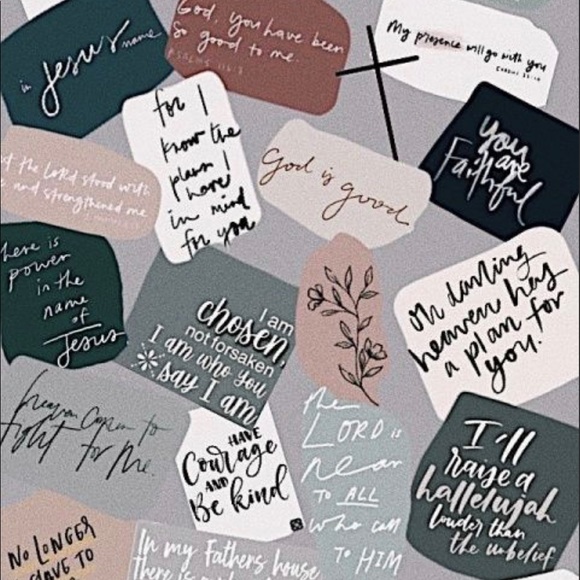 in Jesus name
God, you have been
so good to me.
PSALMS 116:7
My presence will go with you
EXODUS 33:14
for I
know the
plans I
have
in mind
for you
you
are
Faithful
God is good
but the LORD stood with
me and strengthened me
there is
power
in the
name
of
Jesus
I am
chosen,
not forsaken
I am who you
say I am.
oh darling
heaven has
a plan for
you.
heaven comes to
fight for me.
HAVE
Courage
AND
Be kind
The
LORD is
near
TO ALL
who call
TO HIM
I'll
raise a
hallelujah
louder than
the unbelief
NO LONGER
SLAVE TO
In my Fathers house
there is a